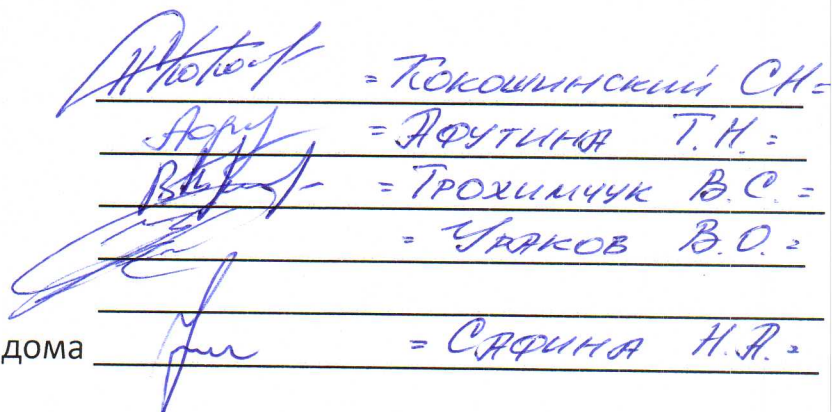 = Кокошинский СН =
= Афутина Т.Н. =
= Трохимчук В.С. =
= Ураков В.О. =
дома = Сафина Н.А. =